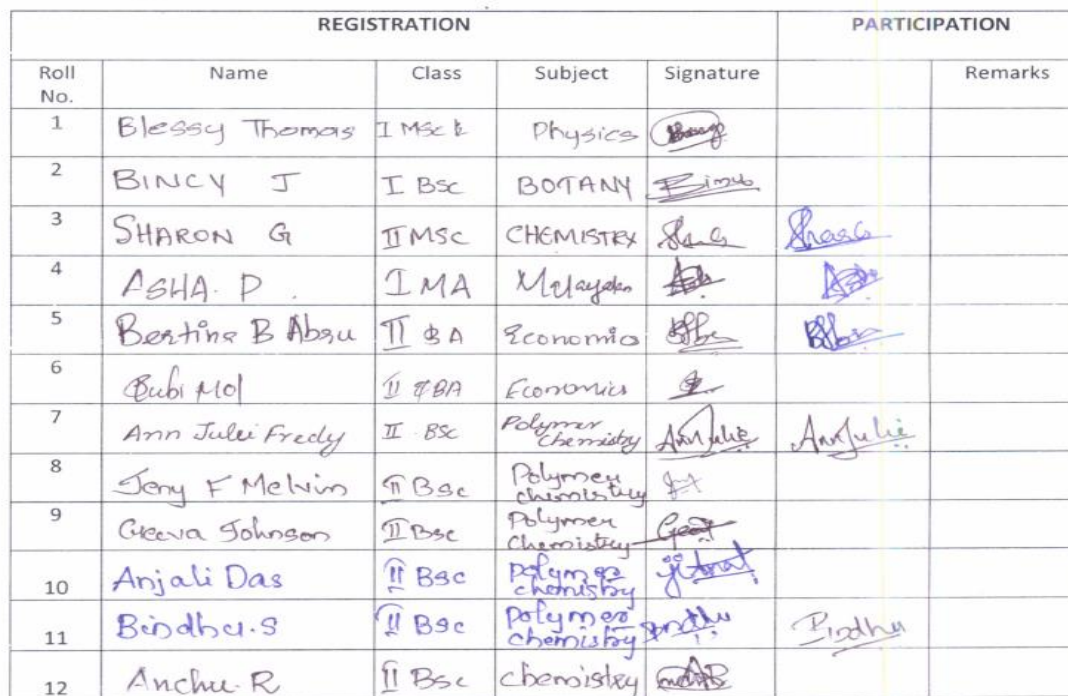 REGISTRATION PARTICIPATION
Roll No. Name Class Subject Signature Remarks
1 Blessy Thomas I MSc Physics
2 BINCY J I BSc BOTANY Bincy
3 SHARON G II MSC CHEMISTRY
4 ASHA. P. I MA
5 Bertina B Absu II BA Economics
6 Bubi Mol II BA Economics
7 Ann Julei Fredy II BSc Polymer chemistry AnnJulie AnnJulie
8 Jeny F Melvin II Bsc Polymer chemistry
9 Geeva Johnson II Bsc Polymer Chemistry
10 Anjali Das II Bsc polymer chemistry
11 Bindhu.S II Bsc polymer chemistry Bindhu
12 Anchu.R II Bsc chemistry